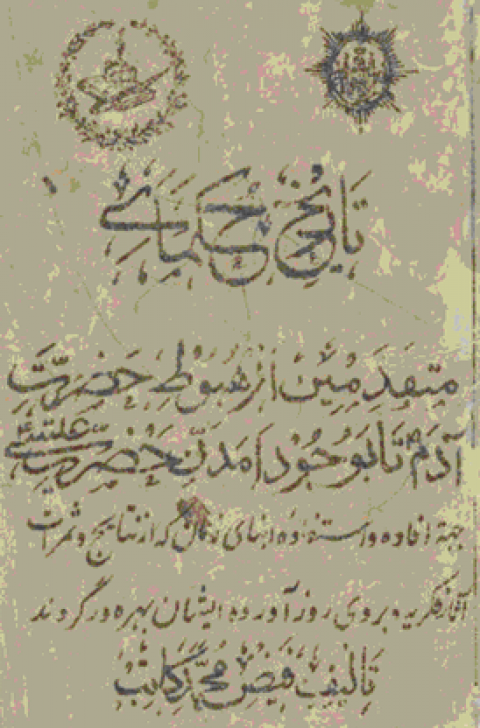 تاریخ حکمای
متقدمین از هبوط حضرت
آدم تا بوجود آمدن حضرت عیسی
جهة افاده و استفاده ابنای زمان که از نتایج و ثمرات
آثار فکریه و بروی روز آورده ایشان بهره ور گردند
تالیف فیض محمد کاتب